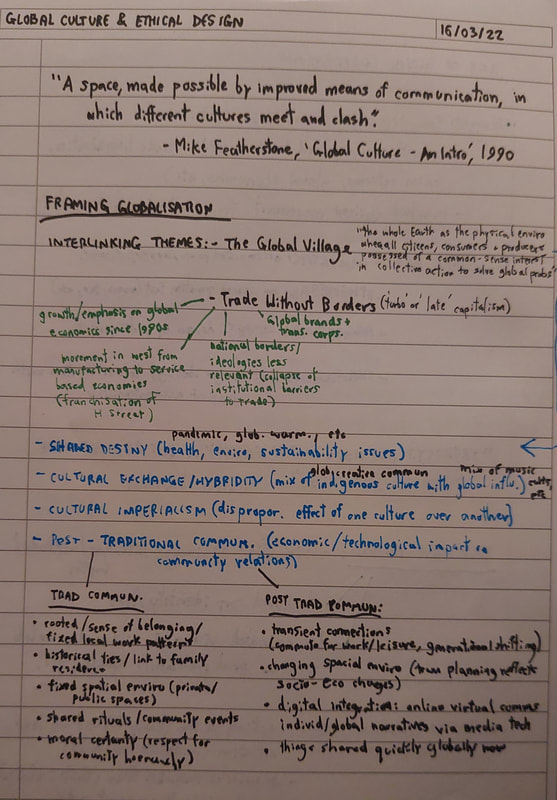 GLOBAL CULTURE & ETHICAL DESIGN
16/03/22
"A space, made possible by improved means of communication, in
which different cultures meet and clash".
- Mike Featherstone, 'Global Culture - An Intro', 1990
FRAMING GLOBALISATION
INTERLINKING THEMES:- The Global Village
"the whole Earth as the physical enviro
where all citizens, consumers + producers
possessed of a common-sense interest
in collection action to solve global probs"
- Trade Without Borders ('turbo' or 'late' capitalism)
growth/emphasis on global
economics since 1990s
movement in west from
manufacturing to service
based economies
(franchisation of
H Street)
national borders/
ideologies less
relevant (collapse of
institutional barriers
to trade)
Global brands +
trans. corps.
pandemic, glob. warm., etc
- SHARED DESTINY (health, enviro, sustainability issues)
glob creative commun
mix of music
cults, etc
- CULTURAL EXCHANGE/HYBRIDITY (mix of indigenous culture with global influ.)
- CULTURAL IMPERIALISM (dispropor. effect of one culture over another)
- POST - TRADITIONAL COMMUN. (economic/technological impact on
community relations)
TRAD COMMUN.
• rooted/sense of belonging/
fixed local work patterns
• historical ties/link to family
• fixed spatial enviro (private/
public spaces)
• shared rituals/community events
• moral certanty (respect for
community hierarchy)
POST TRAD COMMUN:
• transient connections
(commute for work/leisure, generational shifting)
• changing spacial enviro (town planning reflects
socio-eco changes)
• digital integration: online virtual comms
individ/global narratives via media tech
• things shared quickly globally now